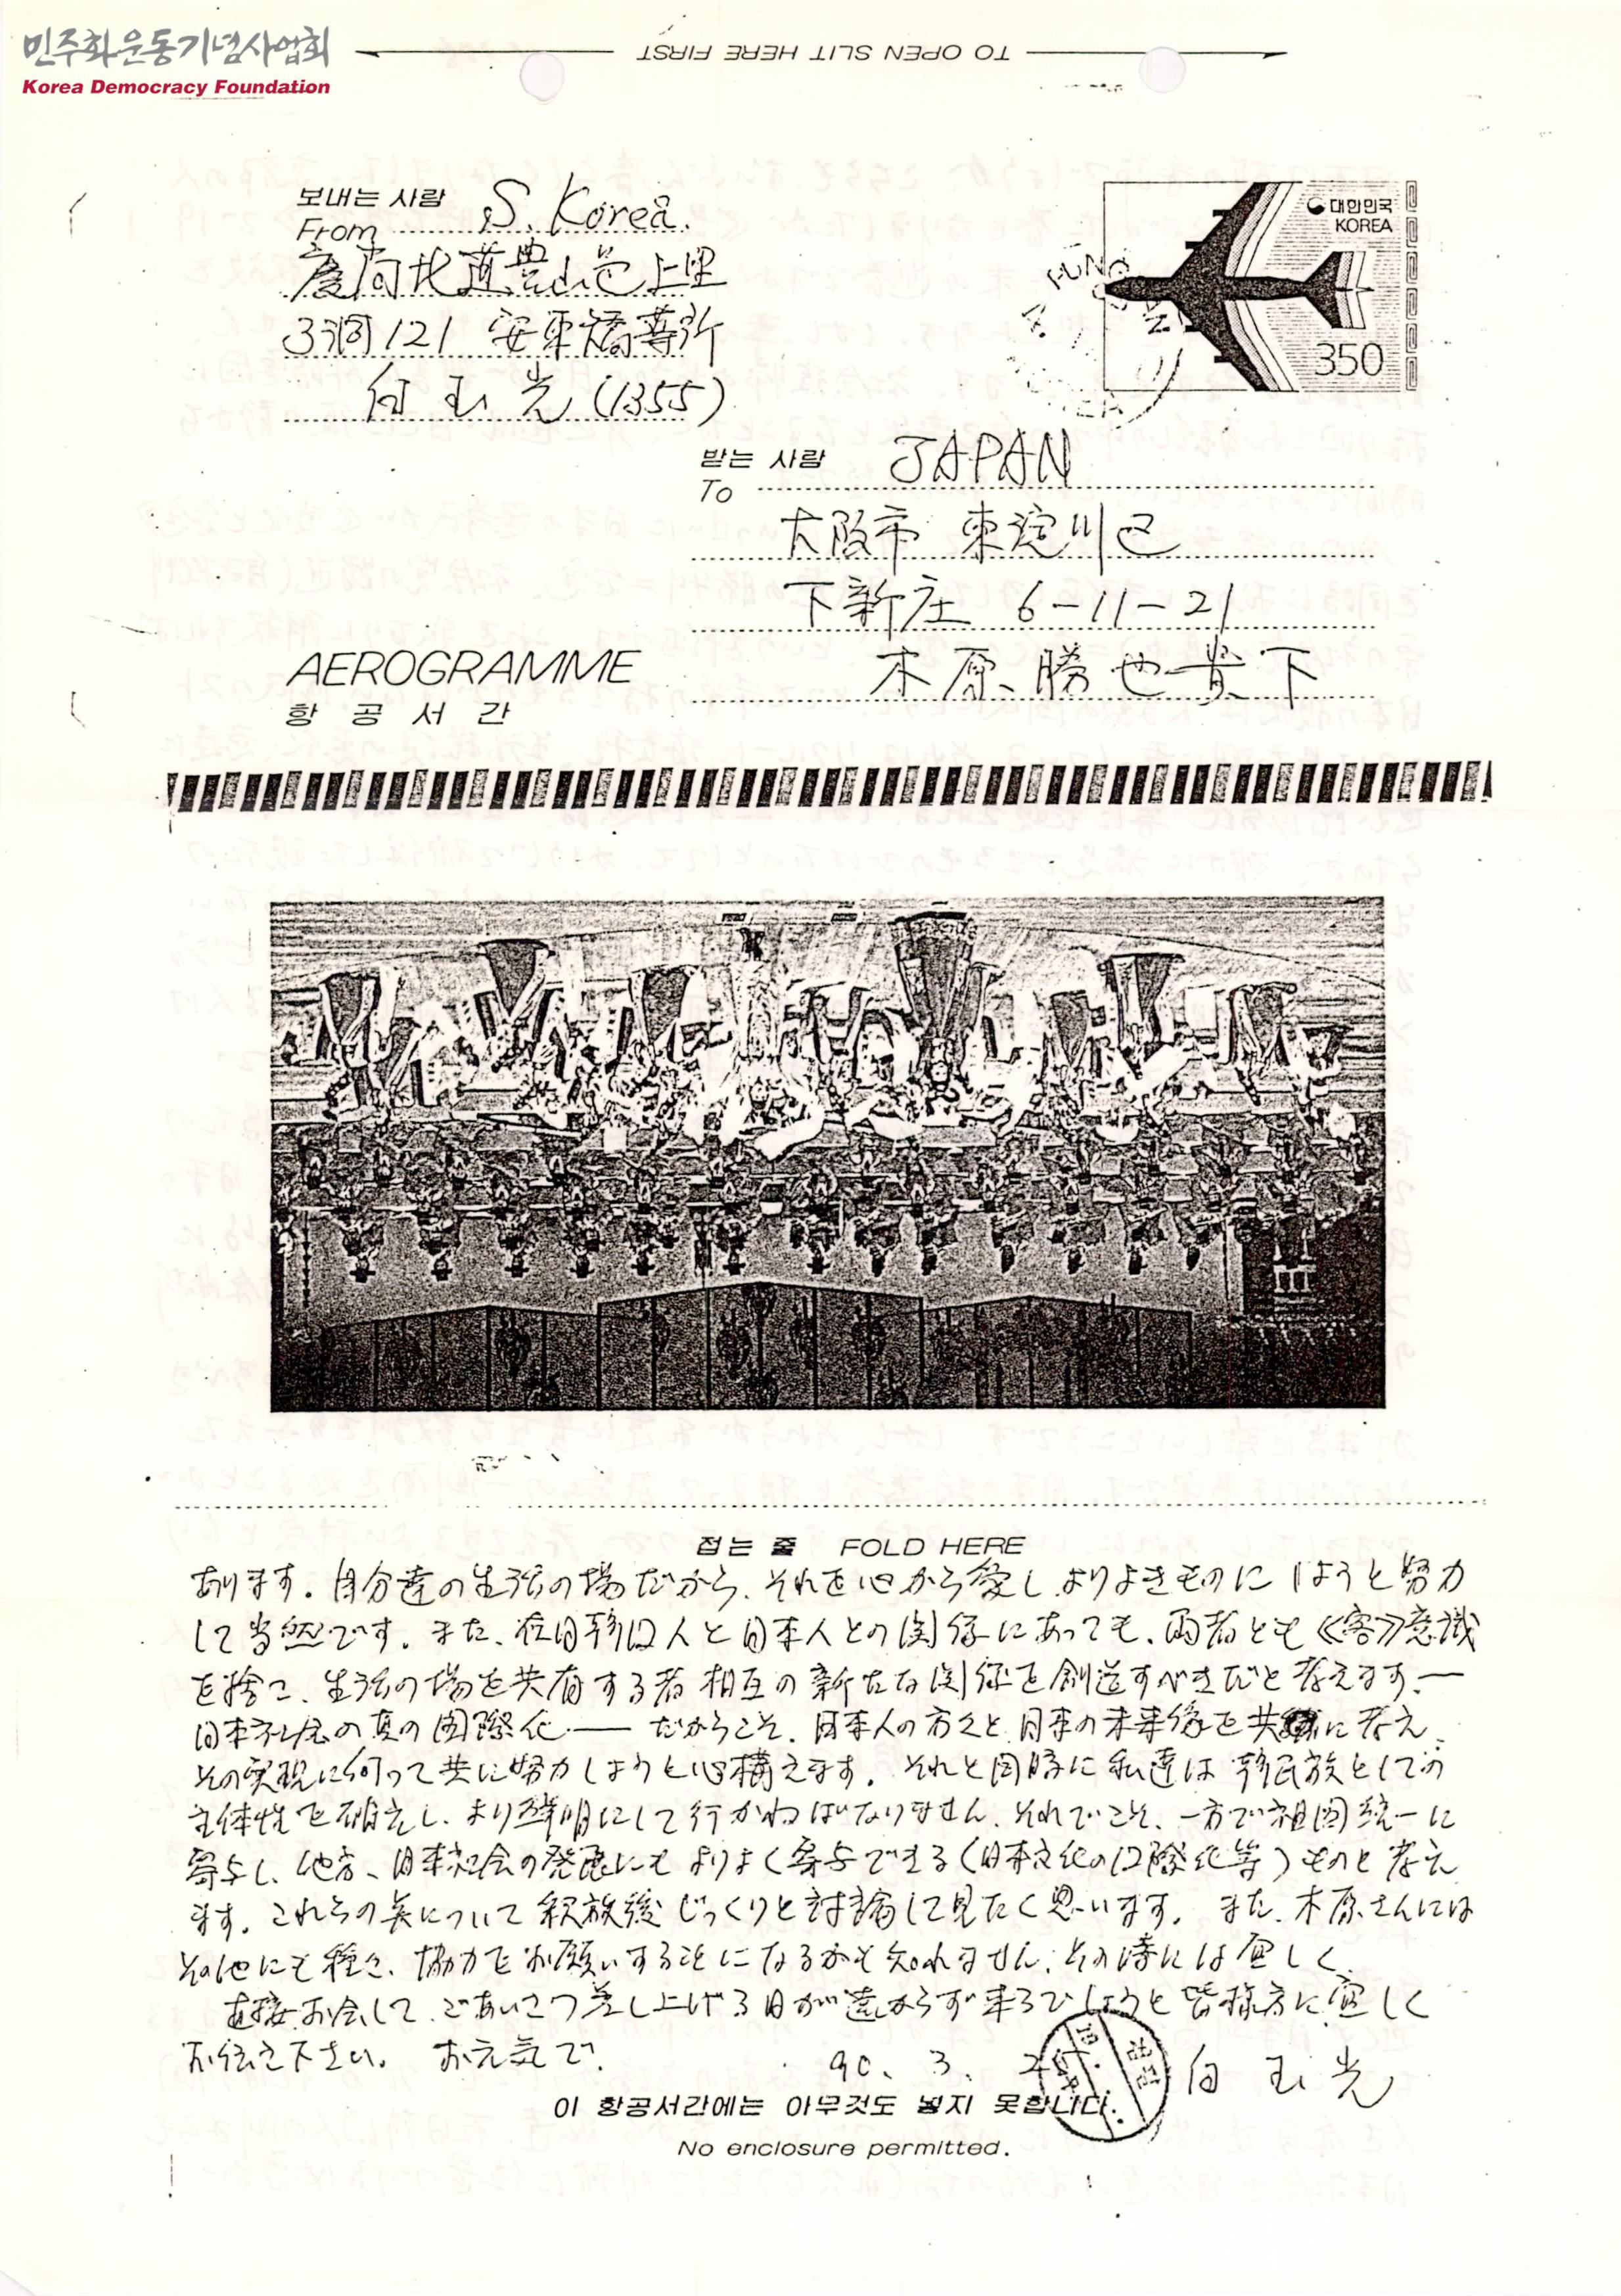 민주화운동기념사업회
Korea Democracy Foundation
TO OPEN SLIT HERE FIRST
보내는 사람
From S. Korea.
慶尚北道豊山邑上里
3洞121 安東矯導所
白玉光(1355)
대한민국
KOREA
350
받는 사람
To JAPAN
大阪市 東淀川区
下新庄 6-11-21
木原勝也貴下
AEROGRAMME
항공서간
접는 줄 FOLD HERE
あります。自分達の生活の場だから、それを心から愛し よりよきものにしようと努力
して当然です。また、在日韓国人と日本人との関係にあっても、両者とも≪客≫意識
を捨て、生活の場を共有する者相互の新たな関係を創造すべきだと考えます。―
日本社会の真の国際化―― だからこそ、日本人の方々と日本の未来像を共に考え、
その実現に向って共に努力しようと心構えます。それと同時に私達は韓民族としての
主体性を確立し、より鮮明にして行かねばなりません。それでこそ、一方で祖国統一に
寄与し、他方、日本社会の発展にもよりよく寄与できる(日本文化の国際化等)ものと考え
ます。これらの点について釈放後じっくりと討論して見たく思います。また、木原さんには
その他にも種々、協力をお願いすることになるかも知れません。その時には宜しく。
直接お会して、ごあいさつ差し上げる日が遠からず来るでしょうと皆様方に宜しく
お伝え下さい。 お元気で。
90. 3. 白玉光
이 항공서간에는 아무것도 넣지 못합니다.
No enclosure permitted.